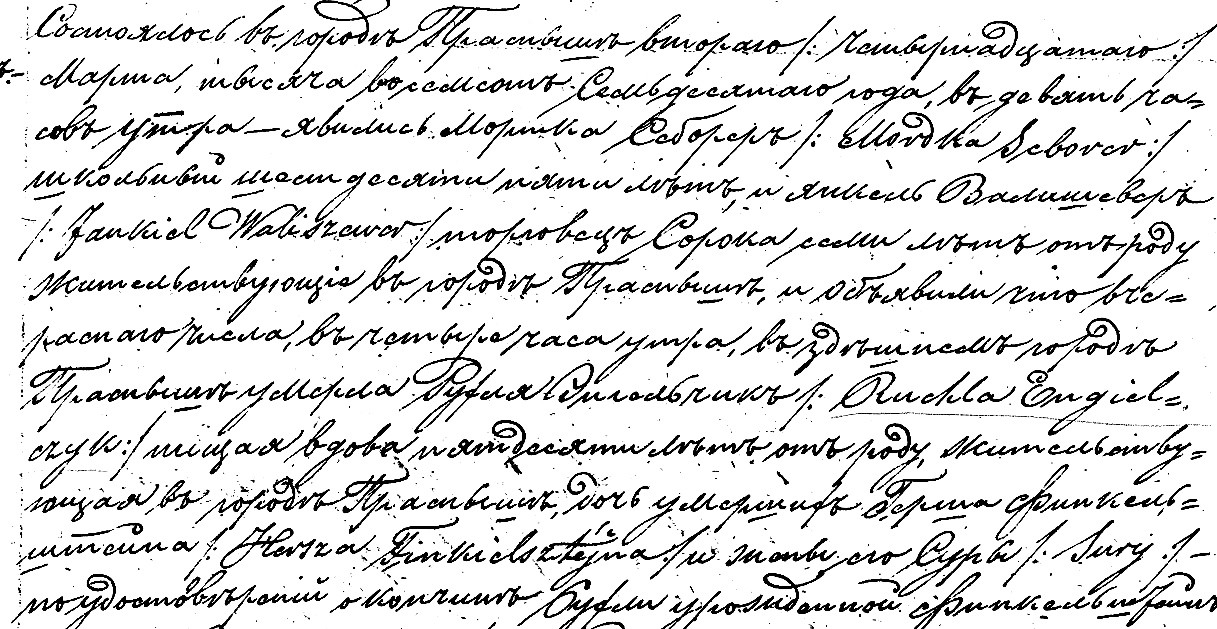 Состоялось въ городѣ Праснышѣ втораго /: четырнадцатаго :/
Марта, тысяча восемсотъ Семьдесятаго года, въ девять ча=
совъ утра — явились Мортка Себореръ /: Mordka Seborer :/
школьный шестидесяти пяти лѣтъ, и Янкель Валишеверъ
/: Jankiel Waliszewer :/ торговецъ Сорока семи лѣтъ отъ роду
жительствующіе въ городѣ Праснышѣ, и объявили что вче=
рашняго числа, въ четыре часа утра, въ здѣшнемъ городѣ
Праснышѣ умерла Рухля Энгельчикъ /: Ruchla Engiel=
czyk :/ нищая вдова пятидесяти лѣтъ отъ роду, жительству=
ющая въ городѣ Праснышѣ, дочь умершихъ Герша Финкель=
штейна /: Hersza Finkielsztejna :/ и жены его Суры /: Sury :/ —
по удостовѣреніи о кончинѣ Рухли урожденной Финкельштейнъ